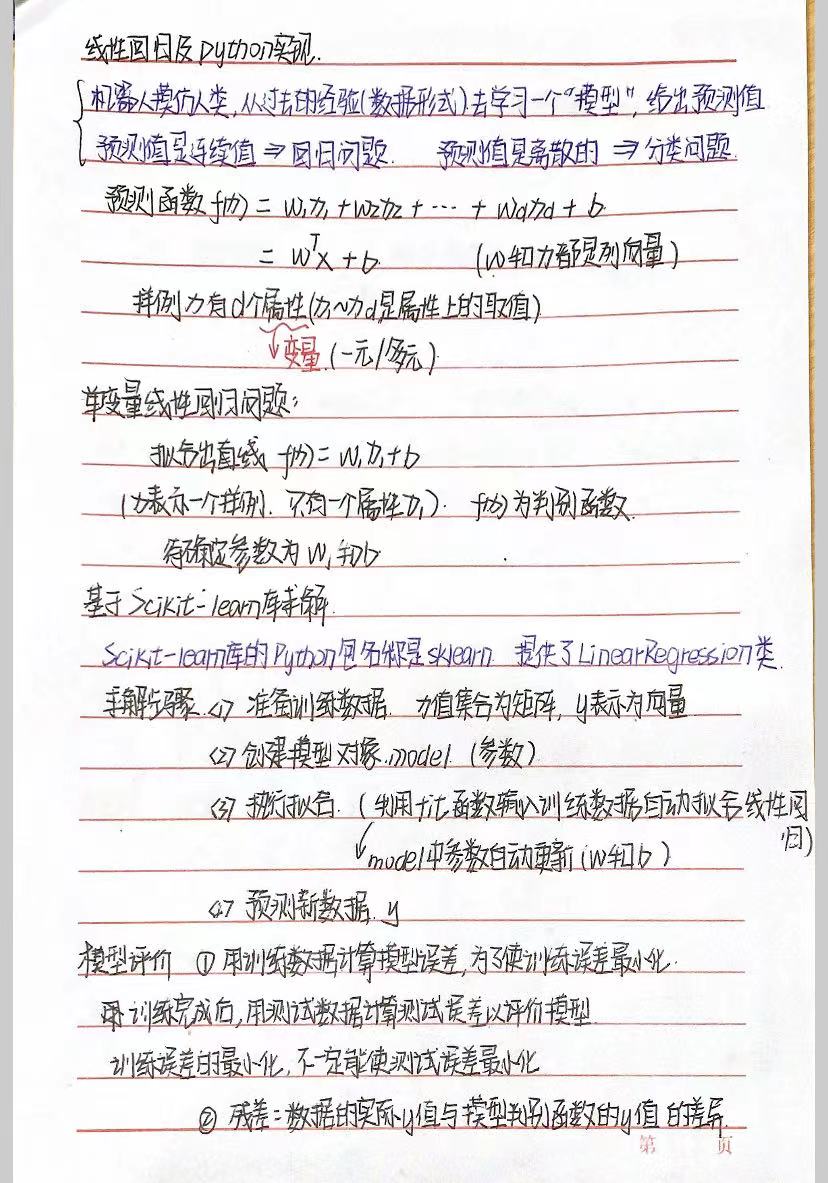 线性回归及Python实现.
机器人模仿人类,从过去的经验(数据形式)去学习一个“模型”,给出预测值
预测值是连续值 ⇒ 回归问题. 预测值是离散的 ⇒ 分类问题.
预测函数 f(x) = w₁x₁ + w₂x₂ + ··· + wdxd + b
= wᵀx + b. (w和x都是列向量)
样例x有d个属性(x₁~xd是属性上的取值)
↓变量.(一元/多元)
单变量线性回归问题:
拟合出直线 f(x) = w₁x₁ + b
(x表示一个样例.只有一个属性x₁). f(x)为判别函数.
待确定参数为w₁和b
基于Scikit-learn库求解.
Scikit-learn库的Python包名称是sklearn 提供了LinearRegression类.
求解步骤.<1> 准备训练数据. x值集合为矩阵,y表示为向量
<2> 创建模型对象.model.(参数)
<3> 执行拟合.(利用fit函数输入训练数据自动拟合线性回
归)
↙model中参数自动更新(w和b)
<4> 预测新数据.y
模型评价 ① 用训练数据计算模型误差,为了使训练误差最小化.
训练完成后,用测试数据计算测试误差以评价模型.
训练误差的最小化,不一定能使测试误差最小化
② 残差:数据的实际y值与模型判别函数的y值的差异.
第 页